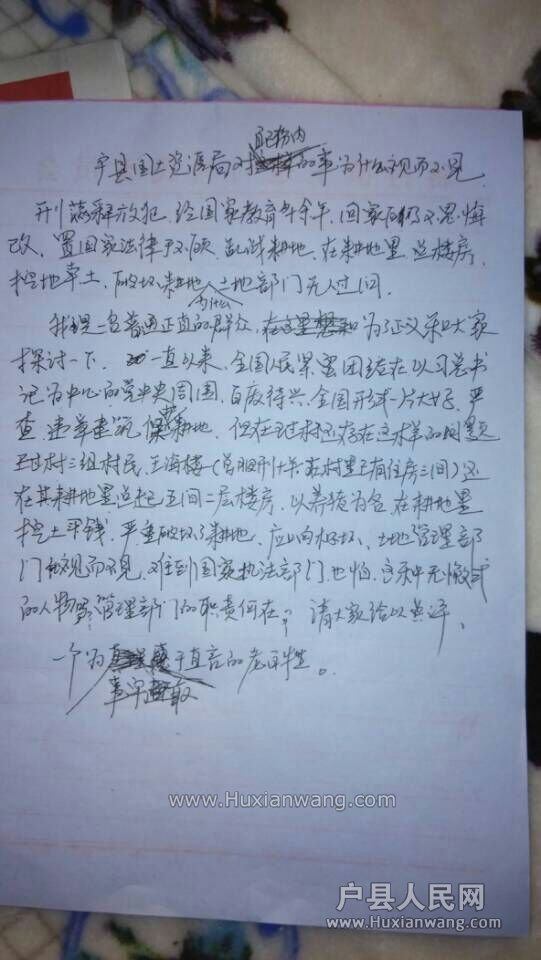 职务内
户县国土资源局对的事为什么视而不见
刑满释放犯,经国家教育廿余年,回家后仍不思悔
改,置国家法律于不顾,乱践耕地,在耕地里盖楼房,
挖地卖土,破坏耕地,土地部门无人过问.
为什么
我是一名普通正直的群众,为了正义和大家
探讨一下.一直以来,全国人民紧密团结在以习总书
记为中心的党中央周围,百废待兴,全国形式一片大好,严
查违章建筑保耕地,但在王过村还存在这样的问题
王过村三组村民王海楼(住房三间)还
在其耕地里盖起五间二层楼房,以养殖为名在耕地里
挖土卖钱,严重破坏了耕地,应响极坏、土地管理部
门视而不见,难到国家执法部门也怕
的人物管理部门的职责何在?请大家给以点评、
一个为干直言的老百姓。
www.Huxianwang.com
户县人民网
www.Huxianwang.com